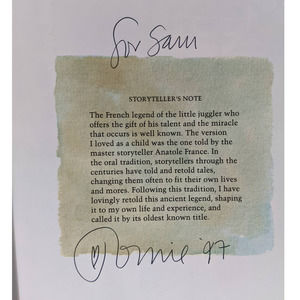 for Sam
STORYTELLER'S NOTE
The French legend of the little juggler who
offers the gift of his talent and the miracle
that occurs is well known. The version
I loved as a child was the one told by the
master storyteller Anatole France. In
the oral tradition, storytellers through the
centuries have told and retold tales,
changing them often to fit their own lives
and mores. Following this tradition, I have
lovingly retold this ancient legend, shaping
it to my own life and experience, and
called it by its oldest known title.
Tomie '97